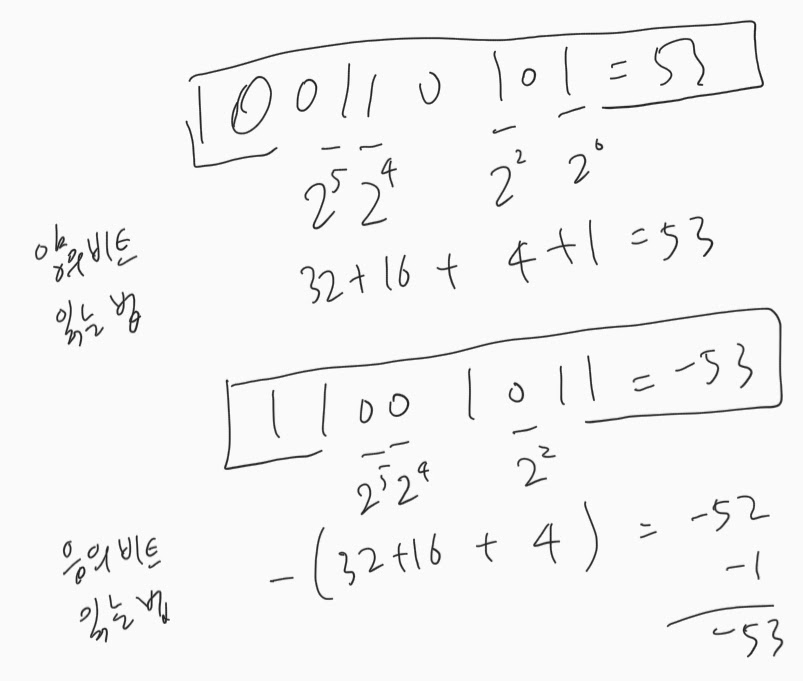 100110 101 = 53
2⁵ 2⁴ 2² 2⁰
양의비트
읽는 법
32+16 + 4+1 = 53
1100 1011 = -53
2⁵ 2⁴ 2²
음의비트
읽는 법
-(32+16 + 4) = -52
-1
-53